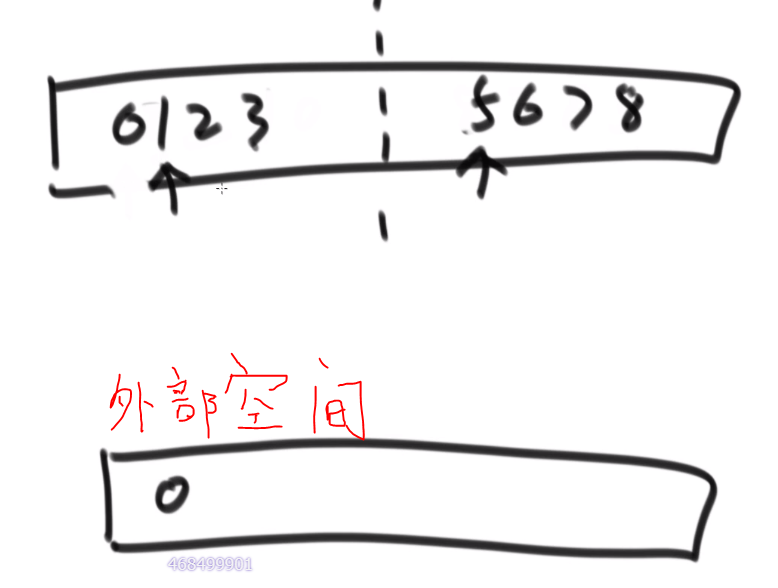 0123 5678
外部空间
0
468499901